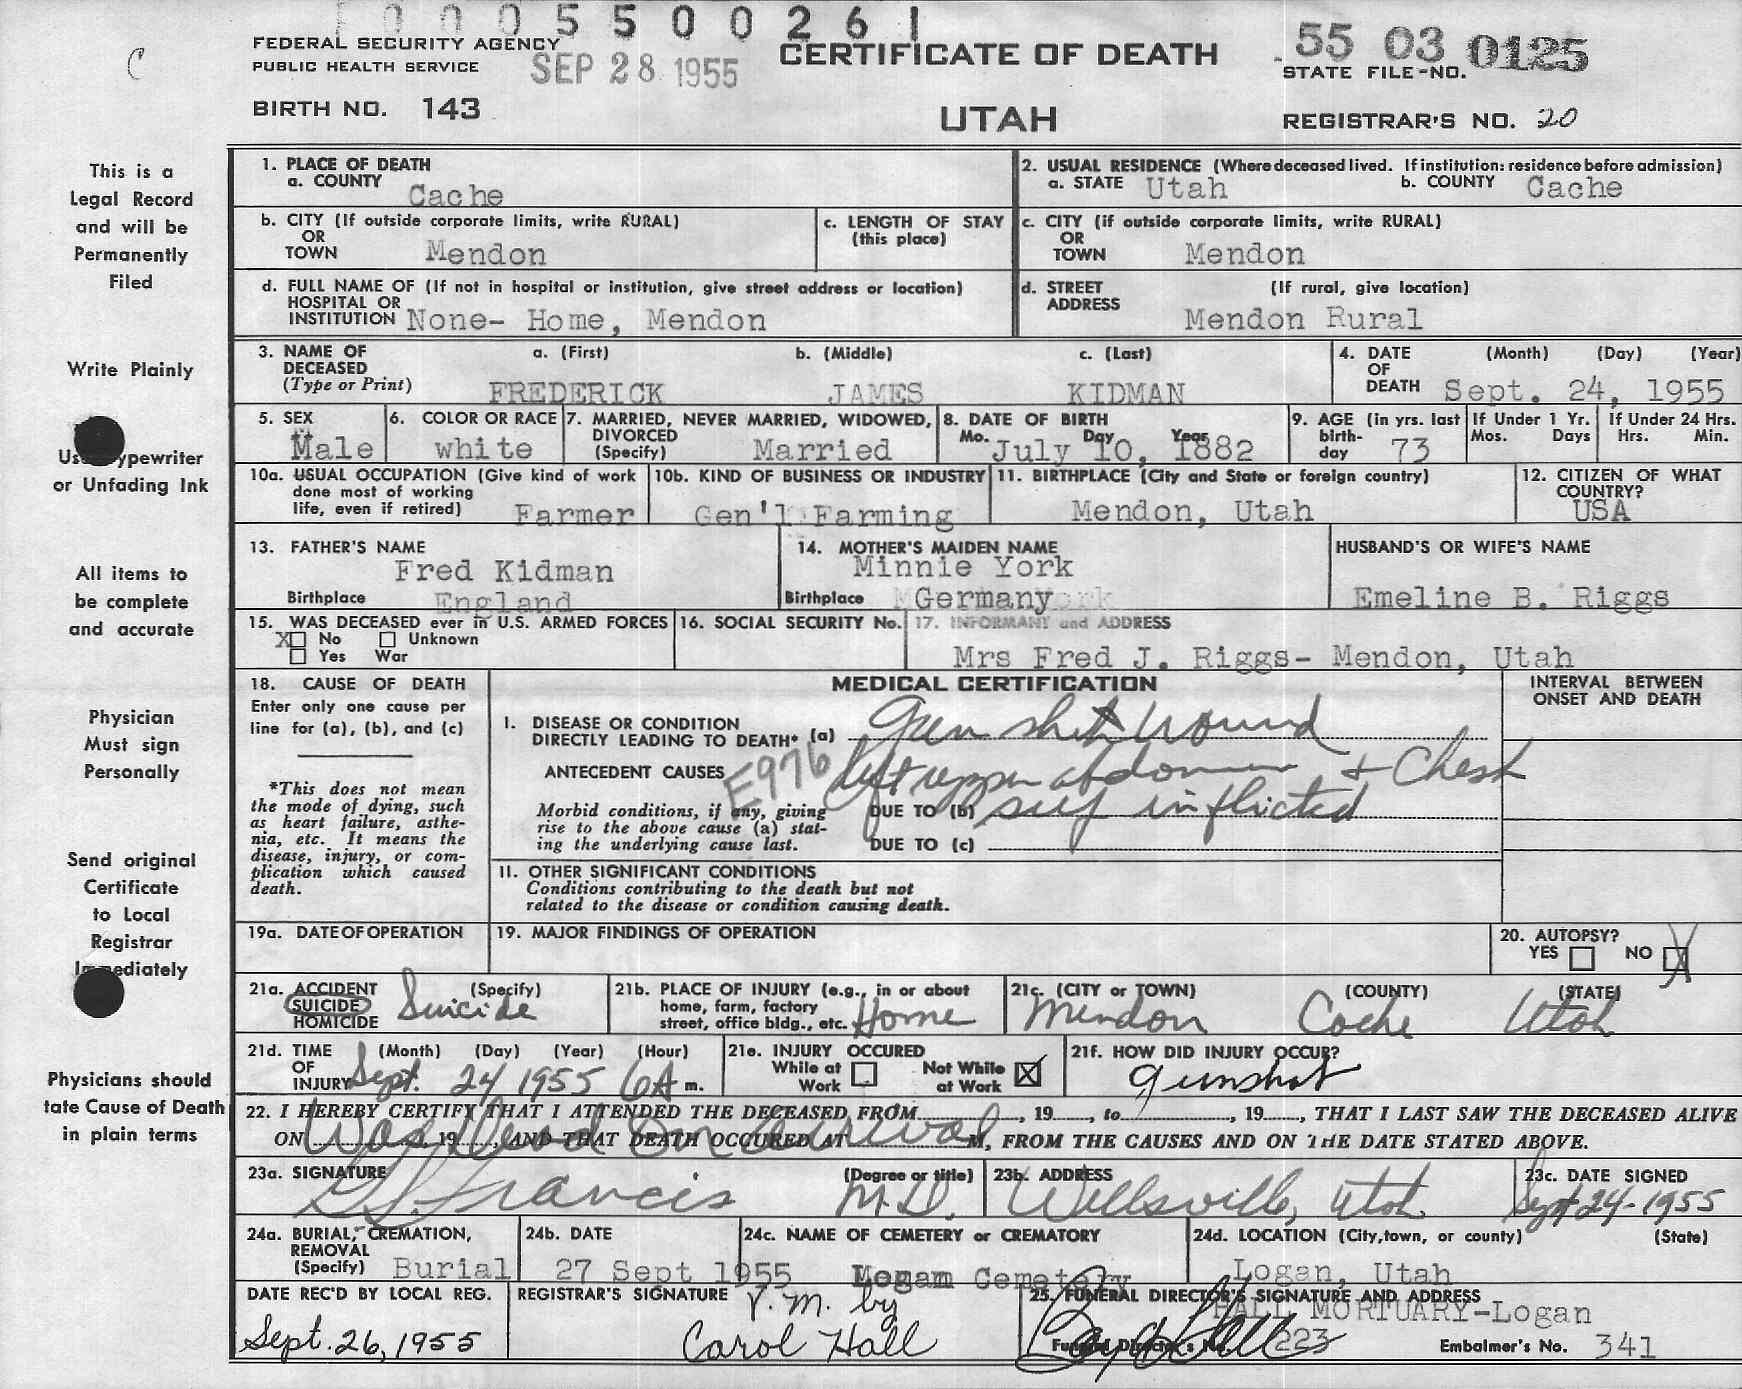 0000550026 1
C
FEDERAL SECURITY AGENCY
PUBLIC HEALTH SERVICE
SEP 28 1955
CERTIFICATE OF DEATH
55 03 0125
STATE FILE-NO.
BIRTH NO. 143
UTAH
REGISTRAR'S NO. 20
This is a
Legal Record
and will be
Permanently
Filed
Write Plainly
Use Typewriter
or Unfading Ink
All items to
be complete
and accurate
Physician
Must sign
Personally
Send original
Certificate
to Local
Registrar
Immediately
Physicians should
tate Cause of Death
in plain terms
1. PLACE OF DEATH
a. COUNTY Cache
2. USUAL RESIDENCE (Where deceased lived. If institution: residence before admission)
a. STATE Utah b. COUNTY Cache
b. CITY (If outside corporate limits, write RURAL)
OR
TOWN Mendon
c. LENGTH OF STAY
(this place)
c. CITY (if outside corporate limits, write RURAL)
OR
TOWN Mendon
d. FULL NAME OF (If not in hospital or institution, give street address or location)
HOSPITAL OR
INSTITUTION None- Home, Mendon
d. STREET (If rural, give location)
ADDRESS
Mendon Rural
3. NAME OF DECEASED
(Type or Print)
a. (First) b. (Middle) c. (Last)
FREDERICK JAMES KIDMAN
4. DATE (Month) (Day) (Year)
OF
DEATH Sept. 24, 1955
5. SEX
Male
6. COLOR OR RACE
white
7. MARRIED, NEVER MARRIED, WIDOWED,
DIVORCED
(Specify) Married
8. DATE OF BIRTH
Mo. Day Year
July 10, 1882
9. AGE (in yrs. last
birth-
day 73
If Under 1 Yr.
Mos. Days
If Under 24 Hrs.
Hrs. Min.
10a. USUAL OCCUPATION (Give kind of work
done most of working
life, even if retired) Farmer
10b. KIND OF BUSINESS OR INDUSTRY
Gen'l Farming
11. BIRTHPLACE (City and State or foreign country)
Mendon, Utah
12. CITIZEN OF WHAT
COUNTRY?
USA
13. FATHER'S NAME
Fred Kidman
Birthplace England
14. MOTHER'S MAIDEN NAME
Minnie York
Birthplace Germany
HUSBAND'S OR WIFE'S NAME
Emeline B. Riggs
15. WAS DECEASED ever in U.S. ARMED FORCES
X No Unknown
Yes War
16. SOCIAL SECURITY No.
17. INFORMANT and ADDRESS
Mrs Fred J. Riggs- Mendon, Utah
18. CAUSE OF DEATH
Enter only one cause per
line for (a), (b), and (c)
*This does not mean
the mode of dying, such
as heart failure, asthe-
nia, etc. It means the
disease, injury, or com-
plication which caused
death.
MEDICAL CERTIFICATION
INTERVAL BETWEEN
ONSET AND DEATH
I. DISEASE OR CONDITION
DIRECTLY LEADING TO DEATH* (a) Gun shot wound
ANTECEDENT CAUSES E976 left upper abdomen + Chest
Morbid conditions, if any, giving
rise to the above cause (a) stat-
ing the underlying cause last.
DUE TO (b) self inflicted
DUE TO (c)
II. OTHER SIGNIFICANT CONDITIONS
Conditions contributing to the death but not
related to the disease or condition causing death.
19a. DATE OF OPERATION
19. MAJOR FINDINGS OF OPERATION
20. AUTOPSY?
YES NO X
21a. ACCIDENT (Specify)
SUICIDE Suicide
HOMICIDE
21b. PLACE OF INJURY (e.g., in or about
home, farm, factory
street, office bldg., etc. Home
21c. (CITY or TOWN) (COUNTY) (STATE)
Mendon Cache Utah
21d. TIME (Month) (Day) (Year) (Hour)
OF
INJURY Sept. 24 1955 6A m.
21e. INJURY OCCURED
While at Not While
Work at Work X
21f. HOW DID INJURY OCCUR?
gunshot
22. I HEREBY CERTIFY THAT I ATTENDED THE DECEASED FROM , 19 to , 19 , THAT I LAST SAW THE DECEASED ALIVE
ON , 19 , AND THAT DEATH OCCURED AT M, FROM THE CAUSES AND ON THE DATE STATED ABOVE.
Was Dead on arival
23a. SIGNATURE (Degree or title)
Francis M.D.
23b. ADDRESS
Wellsville, Utah
23c. DATE SIGNED
Sept 24-1955
24a. BURIAL, CREMATION,
REMOVAL
(Specify) Burial
24b. DATE
27 Sept 1955
24c. NAME OF CEMETERY or CREMATORY
Logan Cemetery
24d. LOCATION (City, town, or county) (State)
Logan, Utah
DATE REC'D BY LOCAL REG.
Sept. 26, 1955
REGISTRAR'S SIGNATURE V. M. by
Carol Hall
25. FUNERAL DIRECTOR'S SIGNATURE AND ADDRESS
HALL MORTUARY-Logan
Funeral Director's No. 223
Embalmer's No. 341